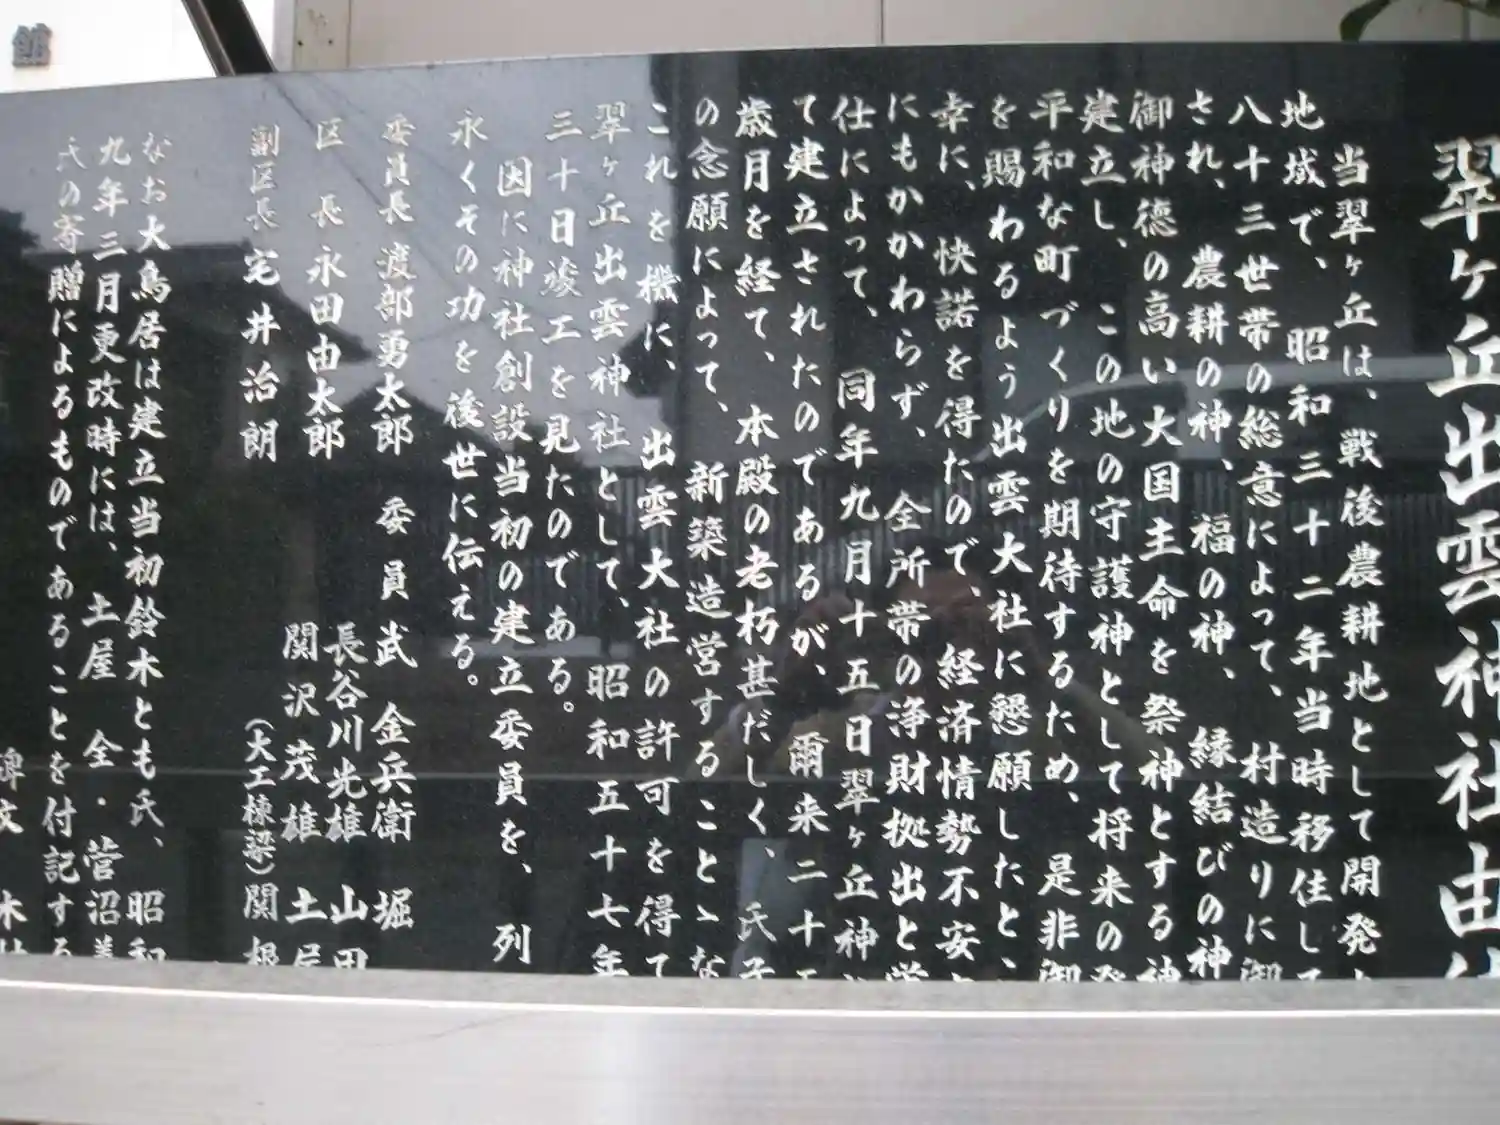 翠ヶ丘出雲神社由
当翠ヶ丘は、戦後農耕地として開発
地域で、昭和三十二年当時移住し
八十三世帯の総意によって、村造りに御
され、農耕の神、福の神、縁結びの神
御神徳の高い大国主命を祭神とする神
建立し、この地の守護神として将来の発
平和な町づくりを期待するため、是非御
を賜わるよう出雲大社に懇願したと、
幸に、快諾を得たので、経済情勢不安
にもかかわらず、全所帯の浄財拠出と労
仕によって、同年九月十五日翠ヶ丘神
て建立されたのであるが、爾来二十
歳月を経て、本殿の老朽甚だしく、氏子
の念願によって、新築造営することゝな
これを機に、出雲大社の許可を得て
翠ヶ丘出雲神社として、昭和五十七年
三十日竣工を見たのである。
因に神社創設当初の建立委員を、列
永くその功を後世に伝える。
委員長 渡部勇太郎 委員 武金兵衛 堀
区長 永田由太郎 長谷川光雄 山田
関沢茂雄 土居
副区長 宅井治朗 (大工棟梁)関根
なお大鳥居は建立当初鈴木とも氏、昭和
九年三月更改時には、土屋全・菅沼
氏の寄贈によるものであることを付記する
碑文
館